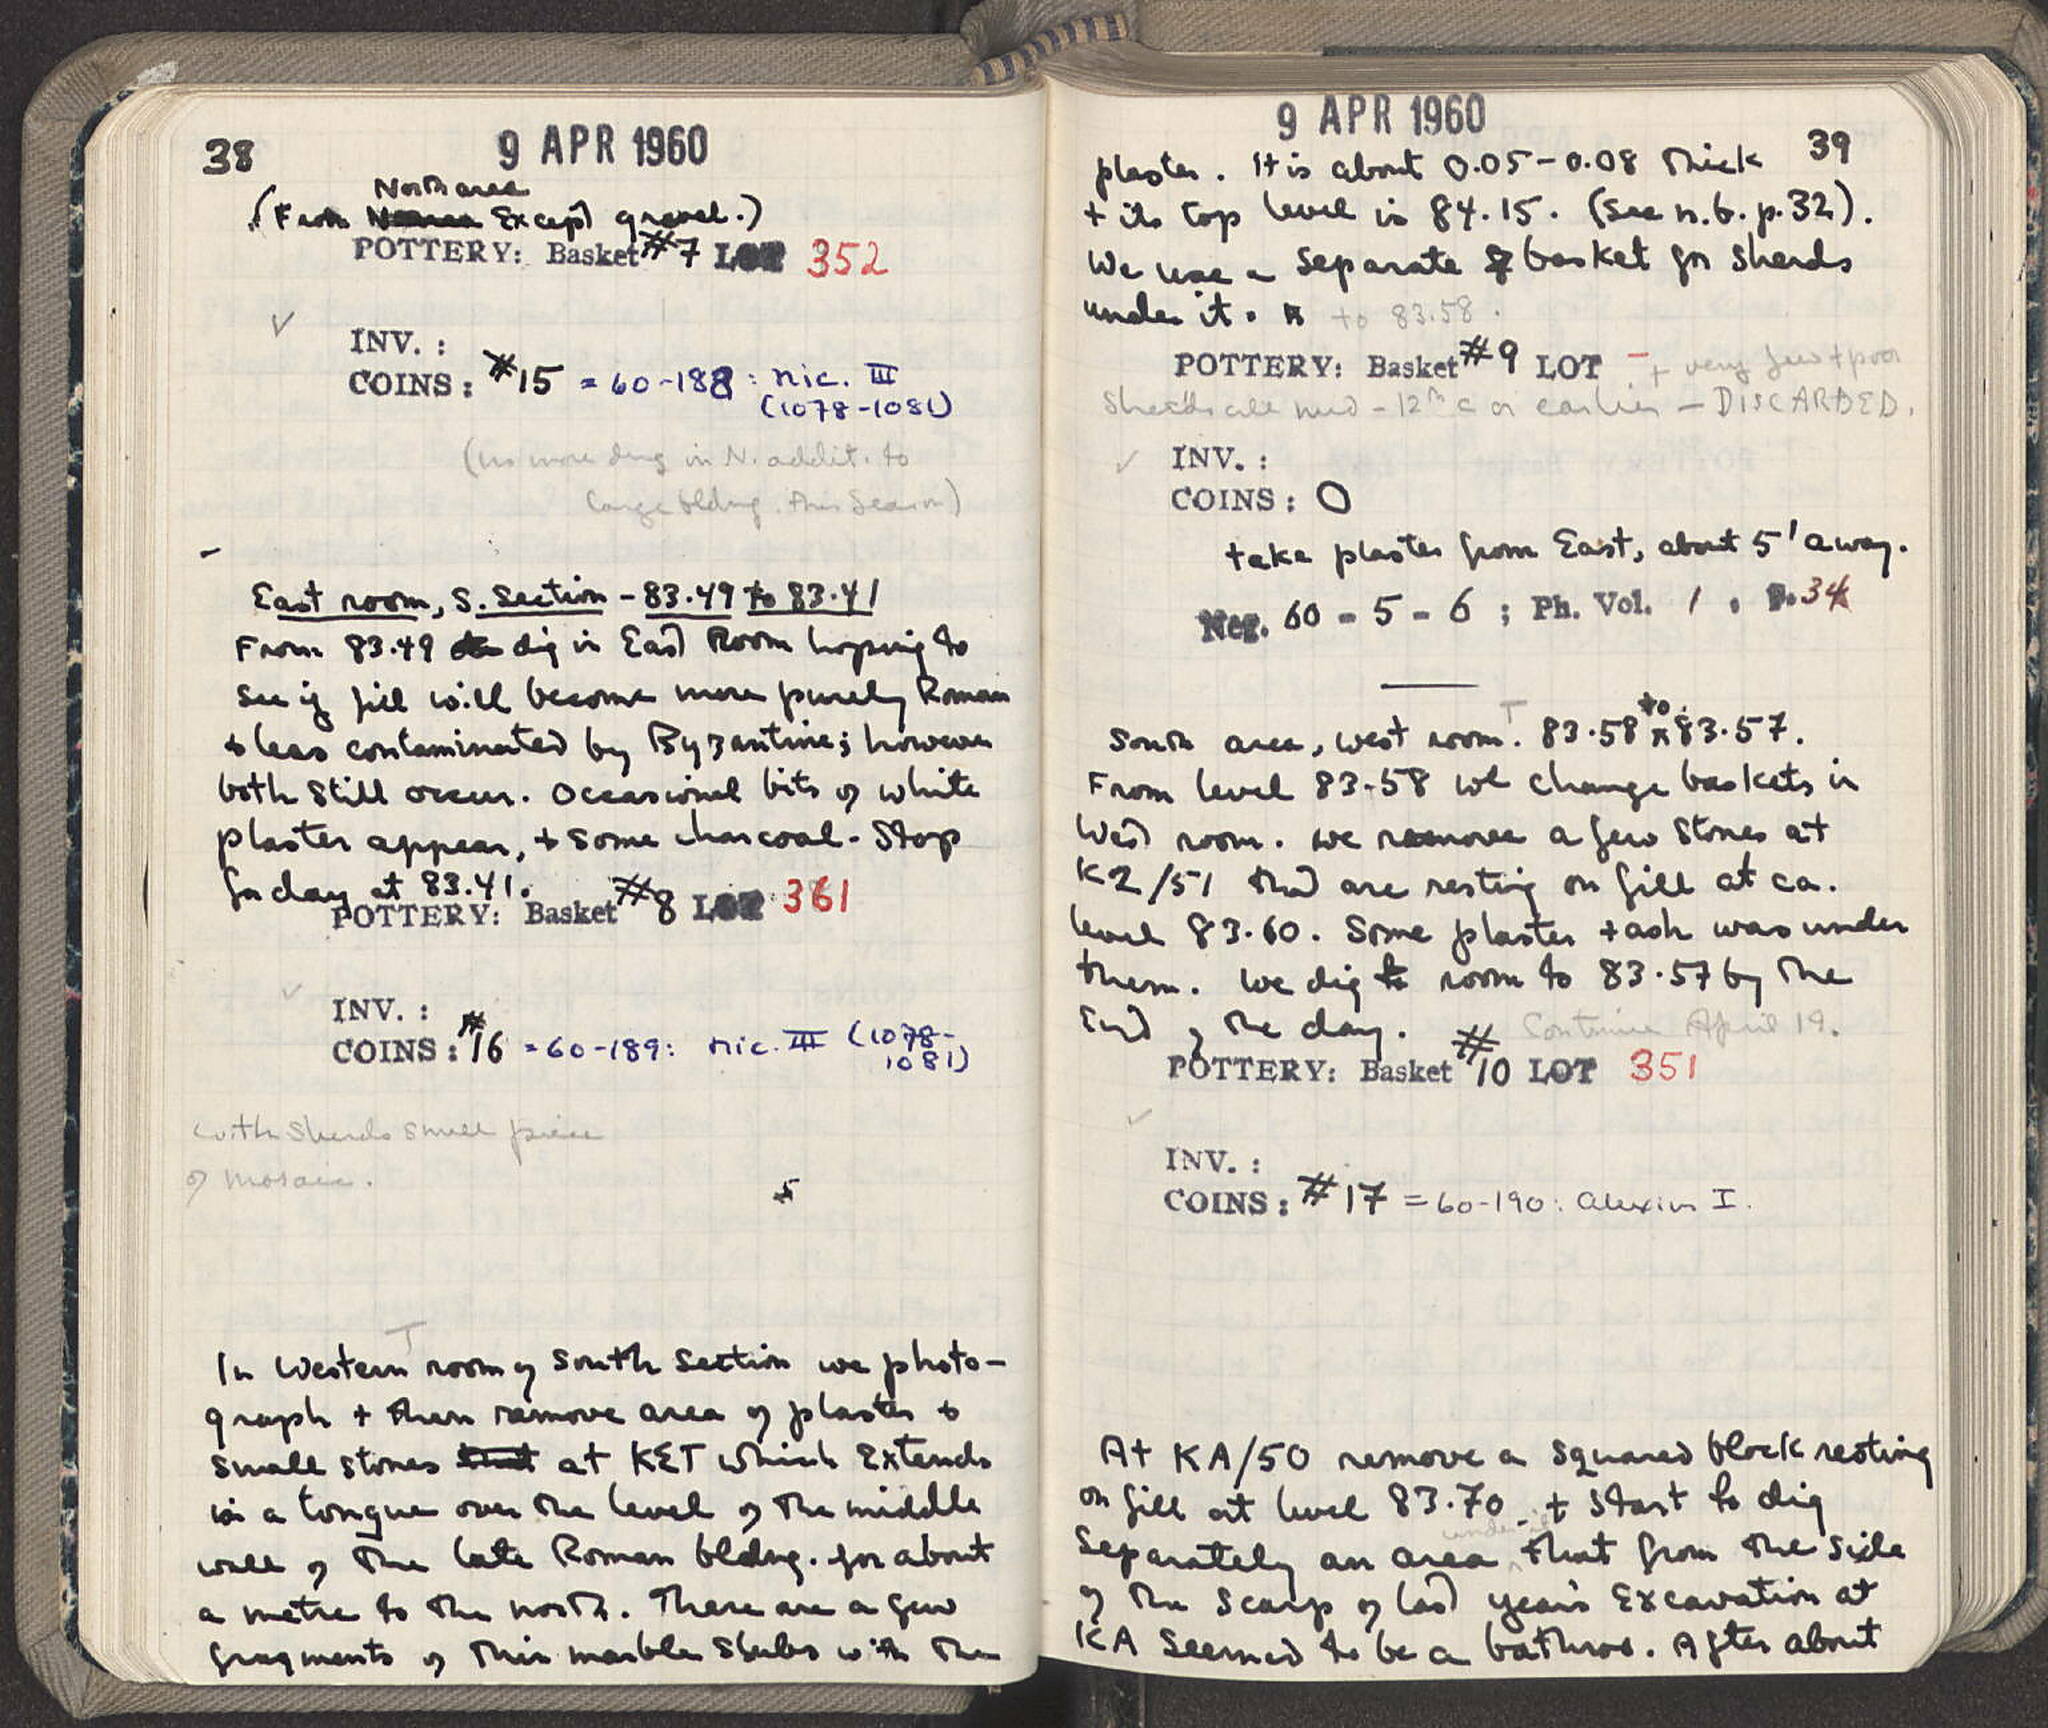 38
9 APR 1960
North area
(From Except gravel.)
POTTERY: Basket #7 LOT 352
✓
INV. :
COINS: #15 = 60-188: Nic. III
(1078-1081)
(no more dug in N. addit. to
large bldng. this season)
East room, S. Section - 83.49 to 83.41
From 83.49 dig in East Room hoping to
see if fill will become more purely Roman
+ less contaminated by Byzantine; however
both still occur. Occasional bits of white
plaster appear, + some charcoal. Stop
for day at 83.41.
POTTERY: Basket #8 LOT 361
✓
INV. :
COINS: #16 = 60-189: Nic. III (1078-
1081)
with sherds small piece
of mosaic.
In Western room of South Section we photo-
graph + then remove area of plaster +
small stones at KET which extends
in a tongue over the level of the middle
wall of the late Roman bldng. for about
a metre to the north. There are a few
fragments of thin marble slabs with the
39
9 APR 1960
plaster. It is about 0.05-0.08 thick
+ its top level is 84.15. (See n.b. p. 32).
We use a separate basket for sherds
under it. to 83.58.
POTTERY: Basket #9 LOT - + very few + poor
sherds all mid-12th c or earlier - DISCARDED.
✓
INV. :
COINS: 0
take plaster from East, about 5' away.
Neg. 60-5-6; Ph. Vol. 1, P. 34
South area, west room. 83.58 to 83.57.
From level 83.58 we change baskets in
West room. We remove a few stones at
K2/51 that are resting on fill at ca.
level 83.60. Some plaster + ash was under
them. We dig room to 83.57 by the
End of the day. Continue April 19.
POTTERY: Basket #10 LOT 351
✓
INV. :
COINS: #17 = 60-190: Alexius I.
At KA/50 remove a squared block resting
on fill at level 83.70 + start to dig
under it
separately an area that from the side
of the scarp of last year's Excavation at
KA seemed to be a bothros. After about